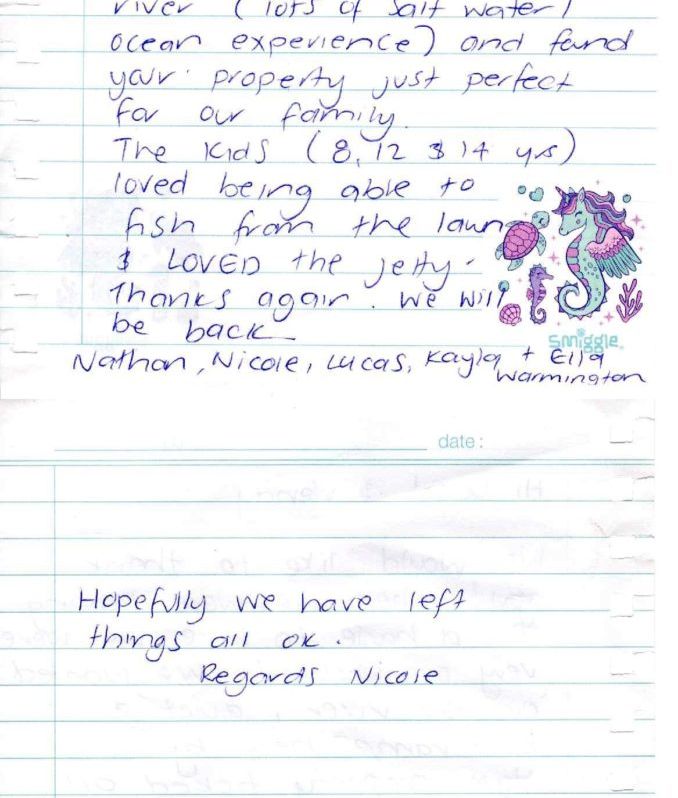 river (lots of salt water/
ocean experience) and found
your property just perfect
for our family.
The kids (8, 12 & 14 yrs)
loved being able to
fish from the lawn
& LOVED the jetty.
Thanks again. We will
be back
smiggle
Nathan, Nicole, Lucas, Kayla + Ella
Warmington
date:
Hopefully we have left
things all ok.
Regards Nicole